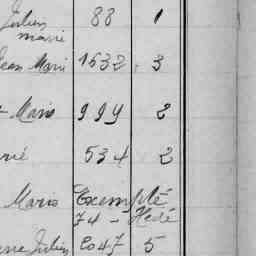 Julien 88 1
marié
Jean Marie 1632 3
Marie 994 2
534 2
Marie Exempté
74 - Hédé
Julien 2047 5